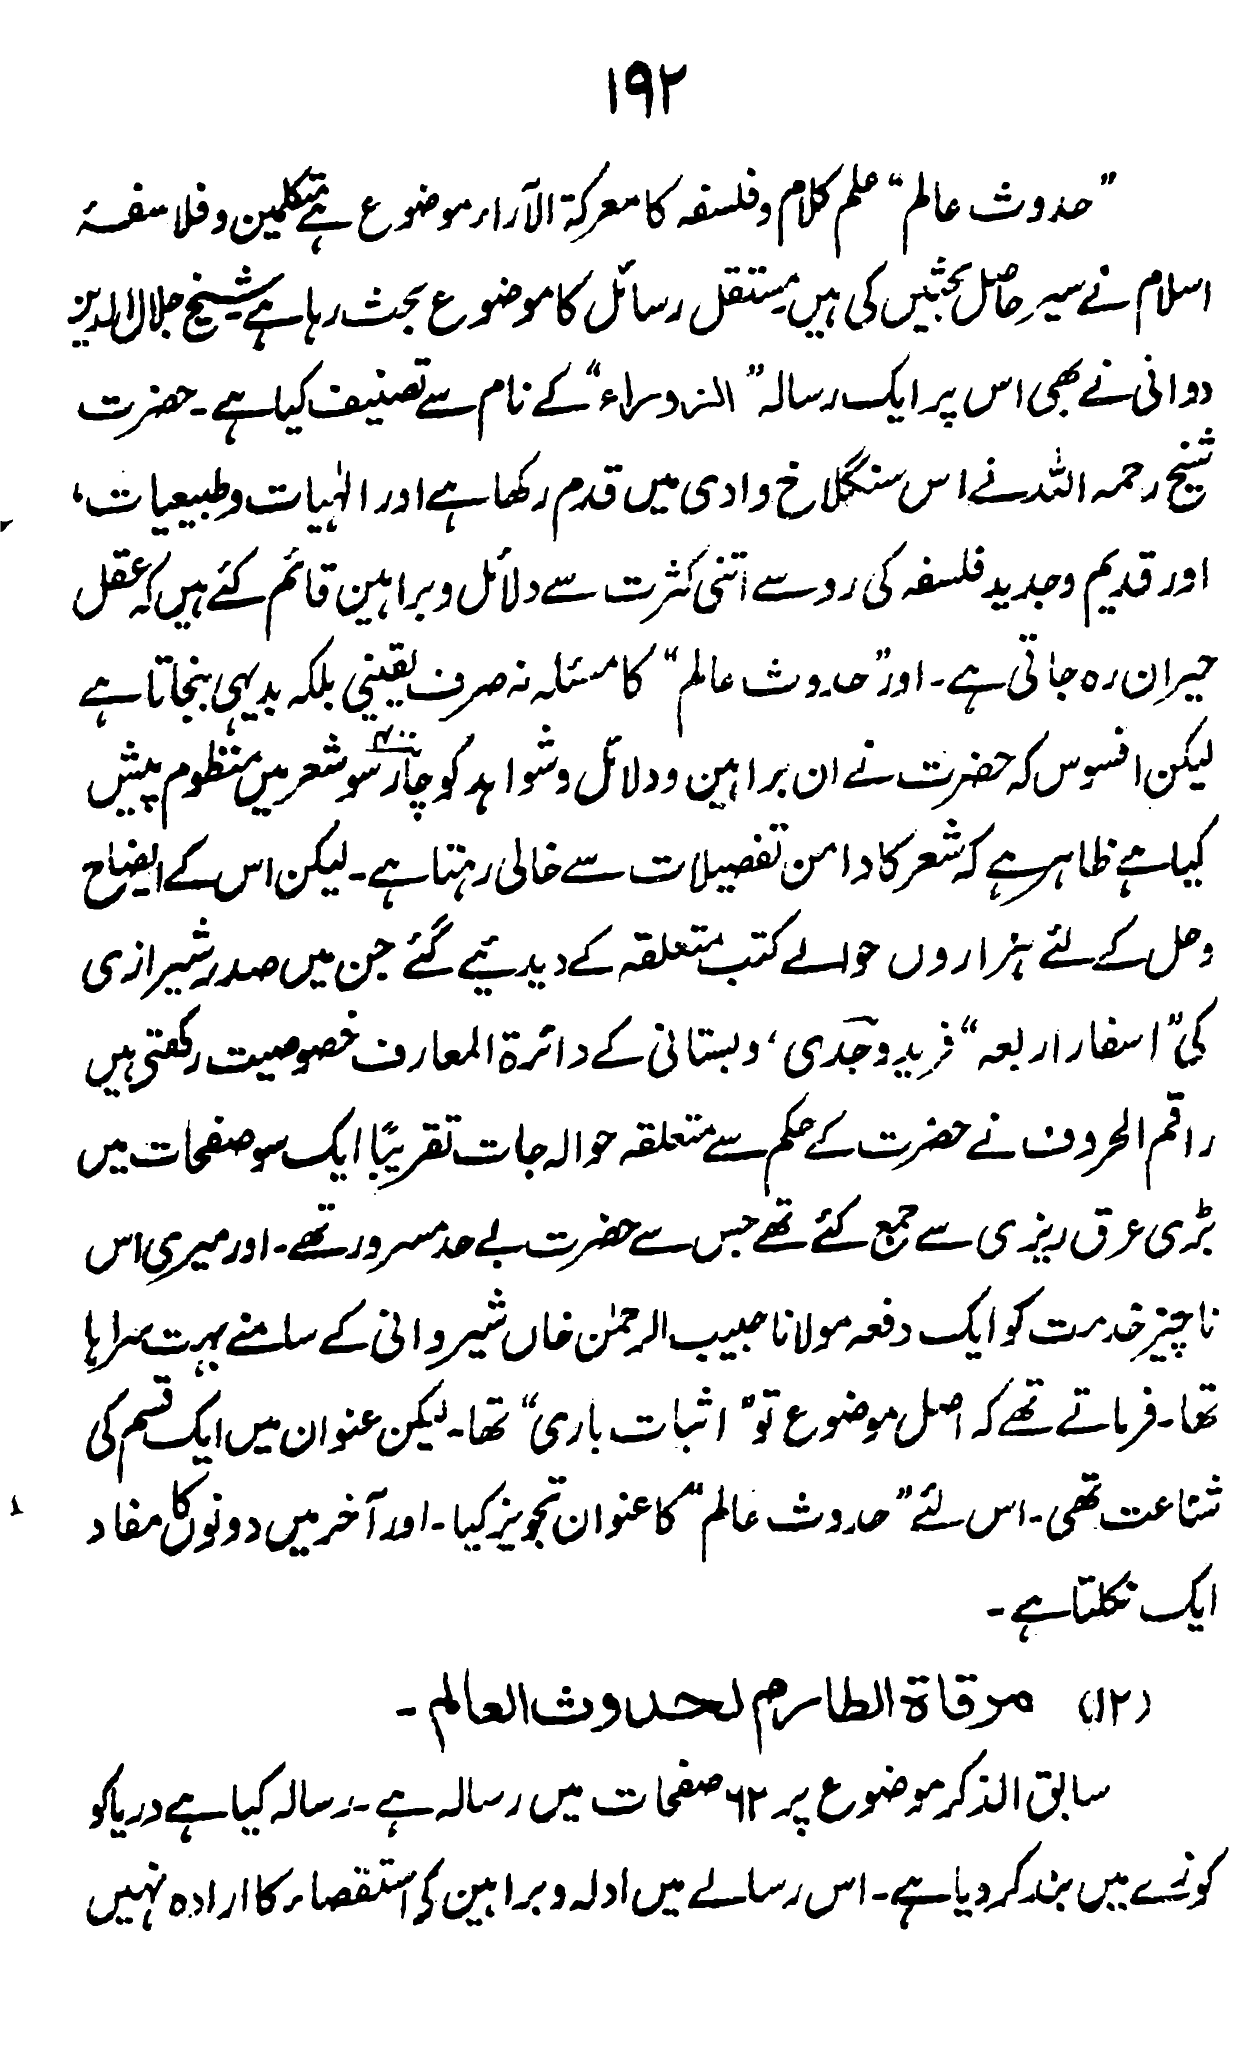 ۱۹۲
”حدوث عالم“ علم کلام و فلسفہ کا معرکۃ الآراء موضوع ہے متکلمین و فلاسفۂ
اسلام نے سیر حاصل بحثیں کی ہیں۔ مستقل رسائل کا موضوع بحث رہا ہے شیخ جلال الدین
دوانی نے بھی اس پر ایک رسالہ ”الزوراء“ کے نام سے تصنیف کیا ہے۔ حضرت
شیخ رحمہ اللہ نے اس سنگلاخ وادی میں قدم رکھا ہے اور الٰہیات و طبیعیات،
اور قدیم و جدید فلسفہ کی رو سے اتنی کثرت سے دلائل و براہین قائم کئے ہیں کہ عقل
حیران رہ جاتی ہے۔ اور ”حدوث عالم“ کا مسئلہ نہ صرف یقینی بلکہ بدیہی بنجاتا ہے
لیکن افسوس کہ حضرت نے ان براہین و دلائل و شواہد کو چار سو ۴۰۰ شعر میں منظوم پیش
کیا ہے ظاہر ہے کہ شعر کا دامن تفصیلات سے خالی رہتا ہے۔ لیکن اس کے ایضاح
و حل کے لئے ہزاروں حوالے کتب متعلقہ کے دیدئیے گئے جن میں صدر شیرازی
کی ”اسفار اربعہ“ فرید وجدی، و بستانی کے دائرۃ المعارف خصوصیت رکھتی ہیں
راقم الحروف نے حضرت کے حکم سے متعلقہ حوالہ جات تقریبًا ایک سو صفحات میں
بڑی عرق ریزی سے جمع کئے تھے جس سے حضرت بے حد مسرور تھے۔ اور میری اس
ناچیز خدمت کو ایک دفعہ مولانا حبیب الرحمٰن خاں شیروانی کے سامنے بہت سراہا
تھا۔ فرماتے تھے کہ اصل موضوع تو ”اثبات باری“ تھا۔ لیکن عنوان میں ایک قسم کی
شناعت تھی۔ اس لئے ”حدوث عالم“ کا عنوان تجویز کیا۔ اور آخر میں دونوں کا مفاد
ایک نکلتا ہے۔
(۱۲) مرقاۃ الطارم لحدوث العالم۔
سابق الذکر موضوع پر ۶۲ صفحات میں رسالہ ہے۔ رسالہ کیا ہے دریا کو
کوزے میں بند کر دیا ہے۔ اس رسالے میں ادلہ و براہین کی استقصاء کا ارادہ نہیں